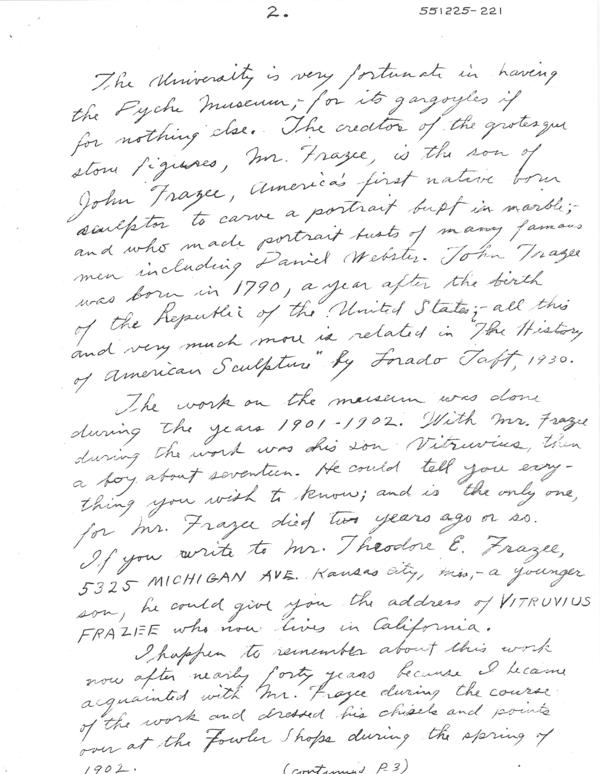 2.
551225-221
The University is very fortunate in having
the Dyche Museum,- for its gargoyles if
for nothing else. The creator of the grotesque
stone figures, Mr. Frazee, is the son of
John Frazee, America's first native born
sculptor to carve a portrait bust in marble;-
and who made portrait busts of many famous
men including Daniel Webster. John Frazee
was born in 1790, a year after the birth
of the Republic of the United States;- all this
and very much more is related in "The History
of American Sculpture" by Lorado Taft, 1930.
The work on the museum was done
during the years 1901-1902. With Mr. Frazee
during the work was his son Vitruvius, then
a boy about seventeen. He could tell you evry-
thing you wish to know; and is the only one,
for Mr. Frazee died two years ago or so.
If you write to Mr. Theodore E. Frazee,
5325 MICHIGAN AVE. Kansas City, Mo,- a younger
son, he could give you the address of VITRUVIUS
FRAZEE who now lives in California.
I happen to remember about this work
now after nearly forty years because I became
acquainted with Mr. Frazee during the course
of the work and dressed his chisels and points
over at the Fowler Shops during the spring of
1902.
(continued P.3)